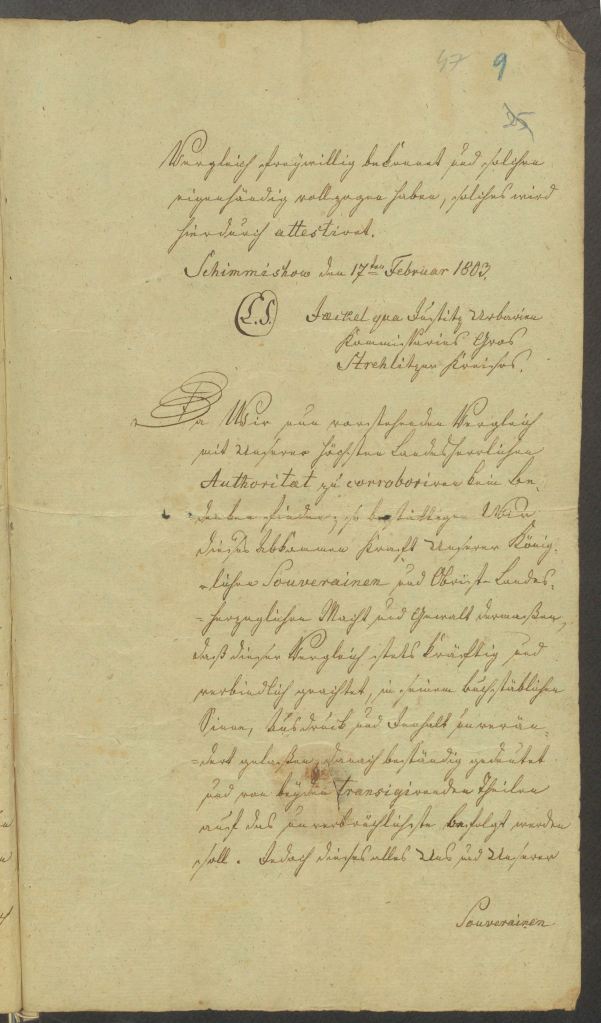 47 9
25
Vergleich freywillig bekennet und solchen
eigenhändig vollzogen haben, solches wird
hierdurch attestiret.
Schimmischow den 17ten Februar 1803.
L.S. Jaeckel qua Justitz Urbarien
Kommissarius Gros
Strehlitzer Kreises.
Da Wir nun vorstehenden Vergleich
mit Unserer höchsten Landesherrlichen
Authoritæt zu corroboriren kein Be-
denken finden, so bestättigen Wir
dieses Abkommen Kraft Unserer König-
-lichen Souverainen und Obrist-Landes-
-herzoglichen Macht und Gewalt dermaßen,
daß dieser Vergleich stets kräftig und
verbindlich geachtet, in seinem buchstäblichen
Sinne, Ausdruck und Innhalt unverän-
-dert gelaßen, danach beständig gedeutet
und von beyden transigirenden Theilen
auf das unverbrüchlichste befolgt werden
soll. Jedoch dieses alles Uns und Unserer
Souverainen